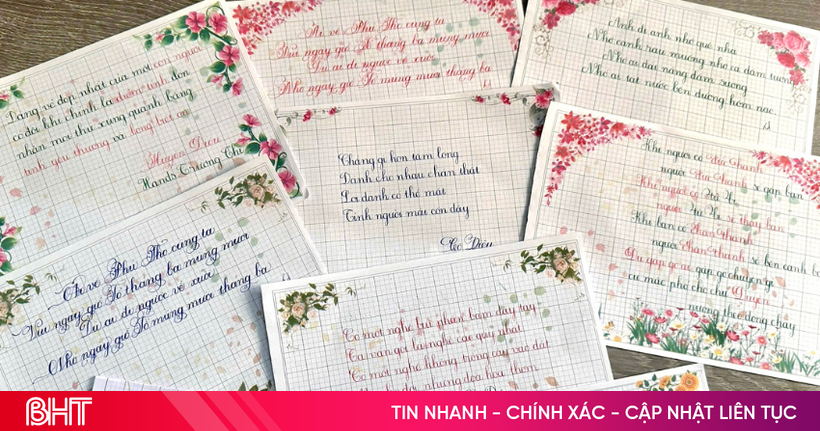 Dáng vẻ đẹp nhất của mỗi con người
có đôi khi chính là dừng lại đón
nhận mọi thứ xung quanh bằng
tình yêu thương và lòng biết ơn
Huyền Diệu
Hands Trường Chi
Ai về Phú Thọ cùng ta
Vui ngày giỗ Tổ tháng ba mùng mười
Dù ai đi ngược về xuôi
Nhớ ngày giỗ Tổ mùng mười tháng ba
Anh đi anh nhớ quê nhà
Nhớ canh rau muống nhớ cà dầm tương
Nhớ ai dãi nắng dầm sương
Nhớ ai tát nước bên đường hôm nao
Chẳng gì hơn tấm lòng
Dành cho nhau chân thật
Lợi danh có thể mất
Tình người mãi còn đây
Khi người có
Khi người có sẽ gặp bạn
người sẽ thấy bạn
Khi bạn có Chân thành
người Chân thành sẽ bên cạnh bạn
Dù gặp gỡ ai, gặp gỡ chuyện gì
cứ mặc phó cho chữ Duyên
nương theo dòng chảy
Ai về Phú Thọ cùng ta
Vui ngày giỗ Tổ tháng ba mùng mười
Dù ai đi ngược về xuôi
Nhớ ngày giỗ Tổ mùng mười tháng ba
Có một nghề bụi phấn bám đầy tay
Ta vẫn gọi là nghề cao quý nhất
Có một nghề không trồng cây vào đất
nhưng đóa hoa thơm
BHT
TIN NHANH - CHÍNH XÁC - CẬP NHẬT LIÊN TỤC